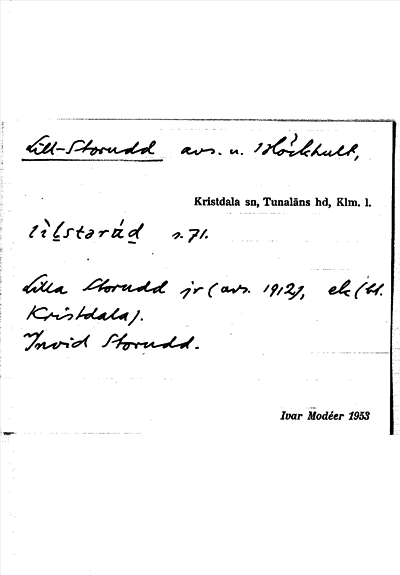 Lill-Storudd avs. u. Höckhult,
Kristdala sn, Tunaläns hd, Klm. l.
s. 71.
Lilla Storudd jr (avs. 1912), ek (bl.
Kristdala).
Invid Storudd.
Ivar Modéer 1953